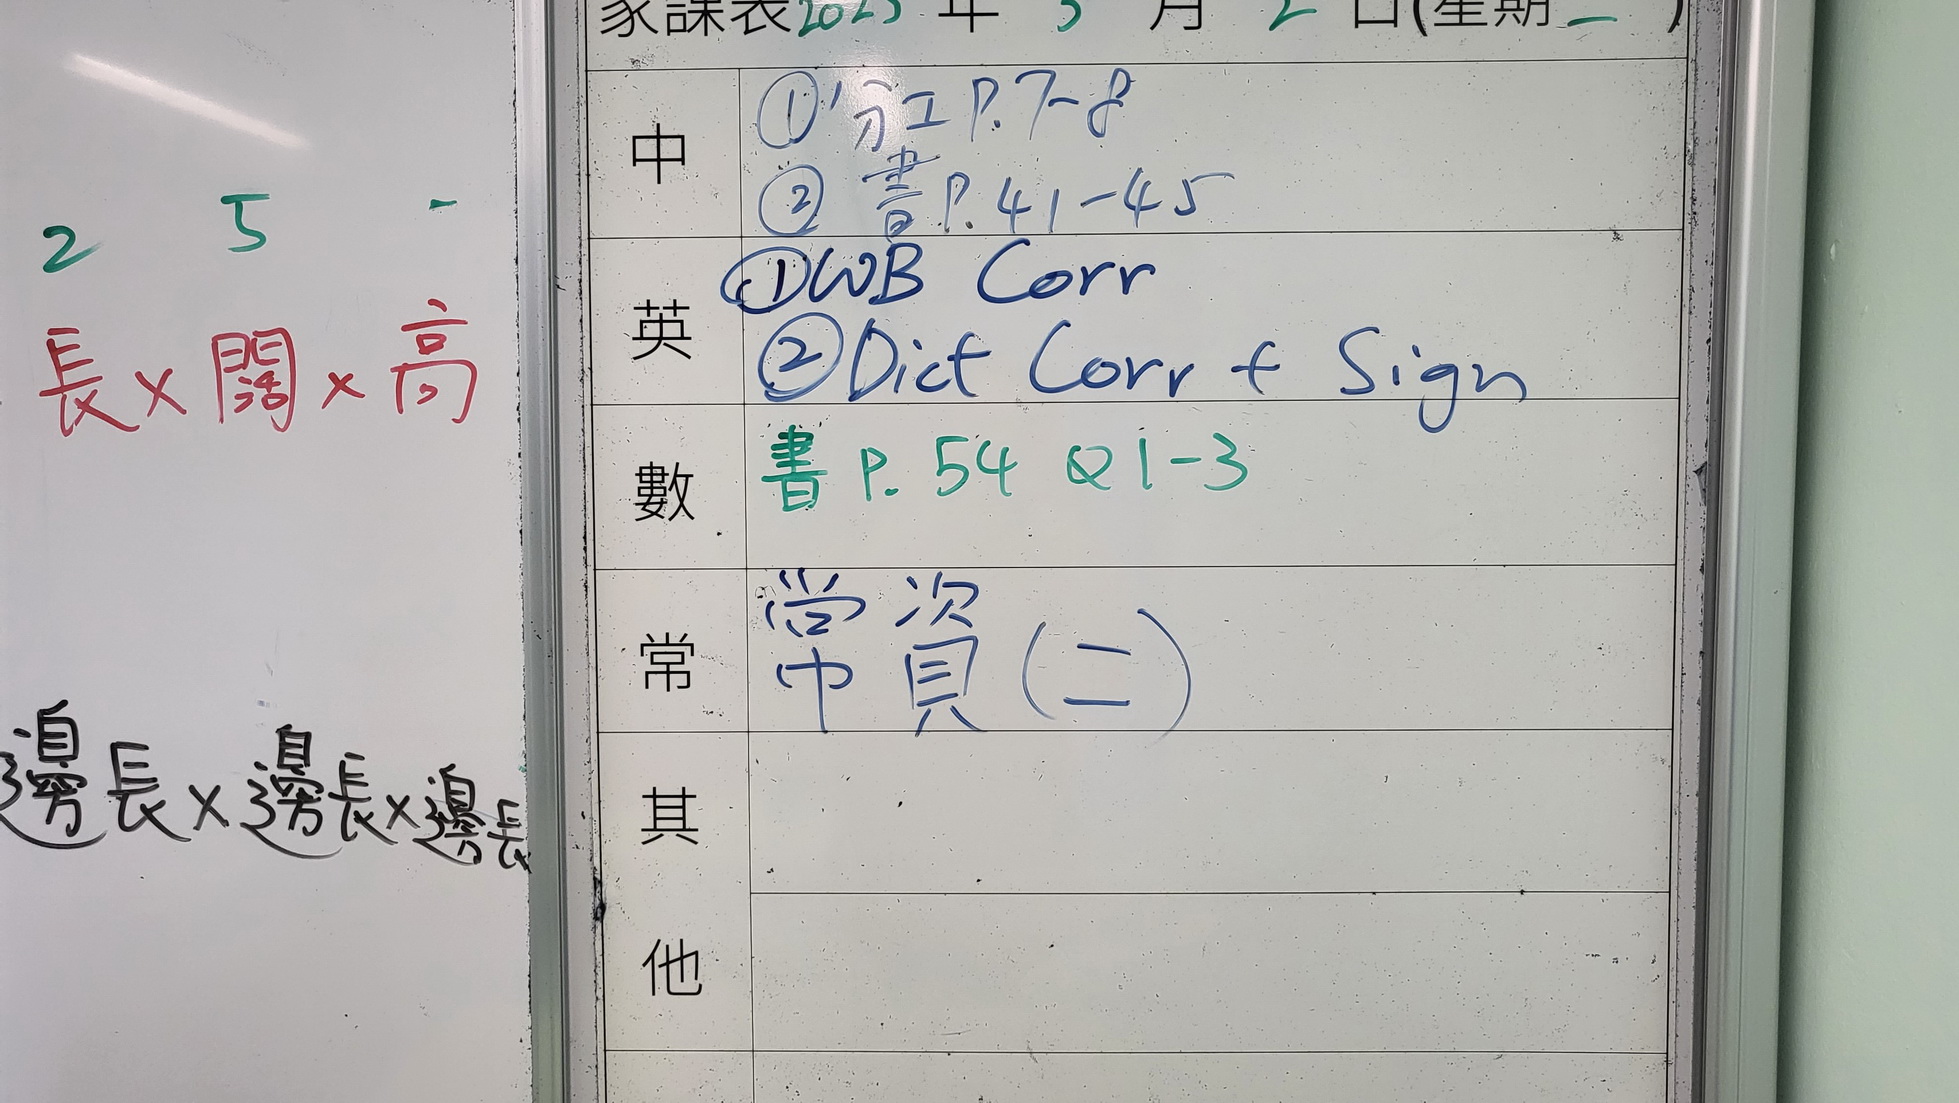 2 5 -
長×闊×高
邊長×邊長×邊長
家課表2025年5月2日(星期 )
中
①分工P.7-8
②書P.41-45
英
①WB Corr
②Dict Corr + Sign
數
書P.54 Q1-3
常
常資(二)
其
他